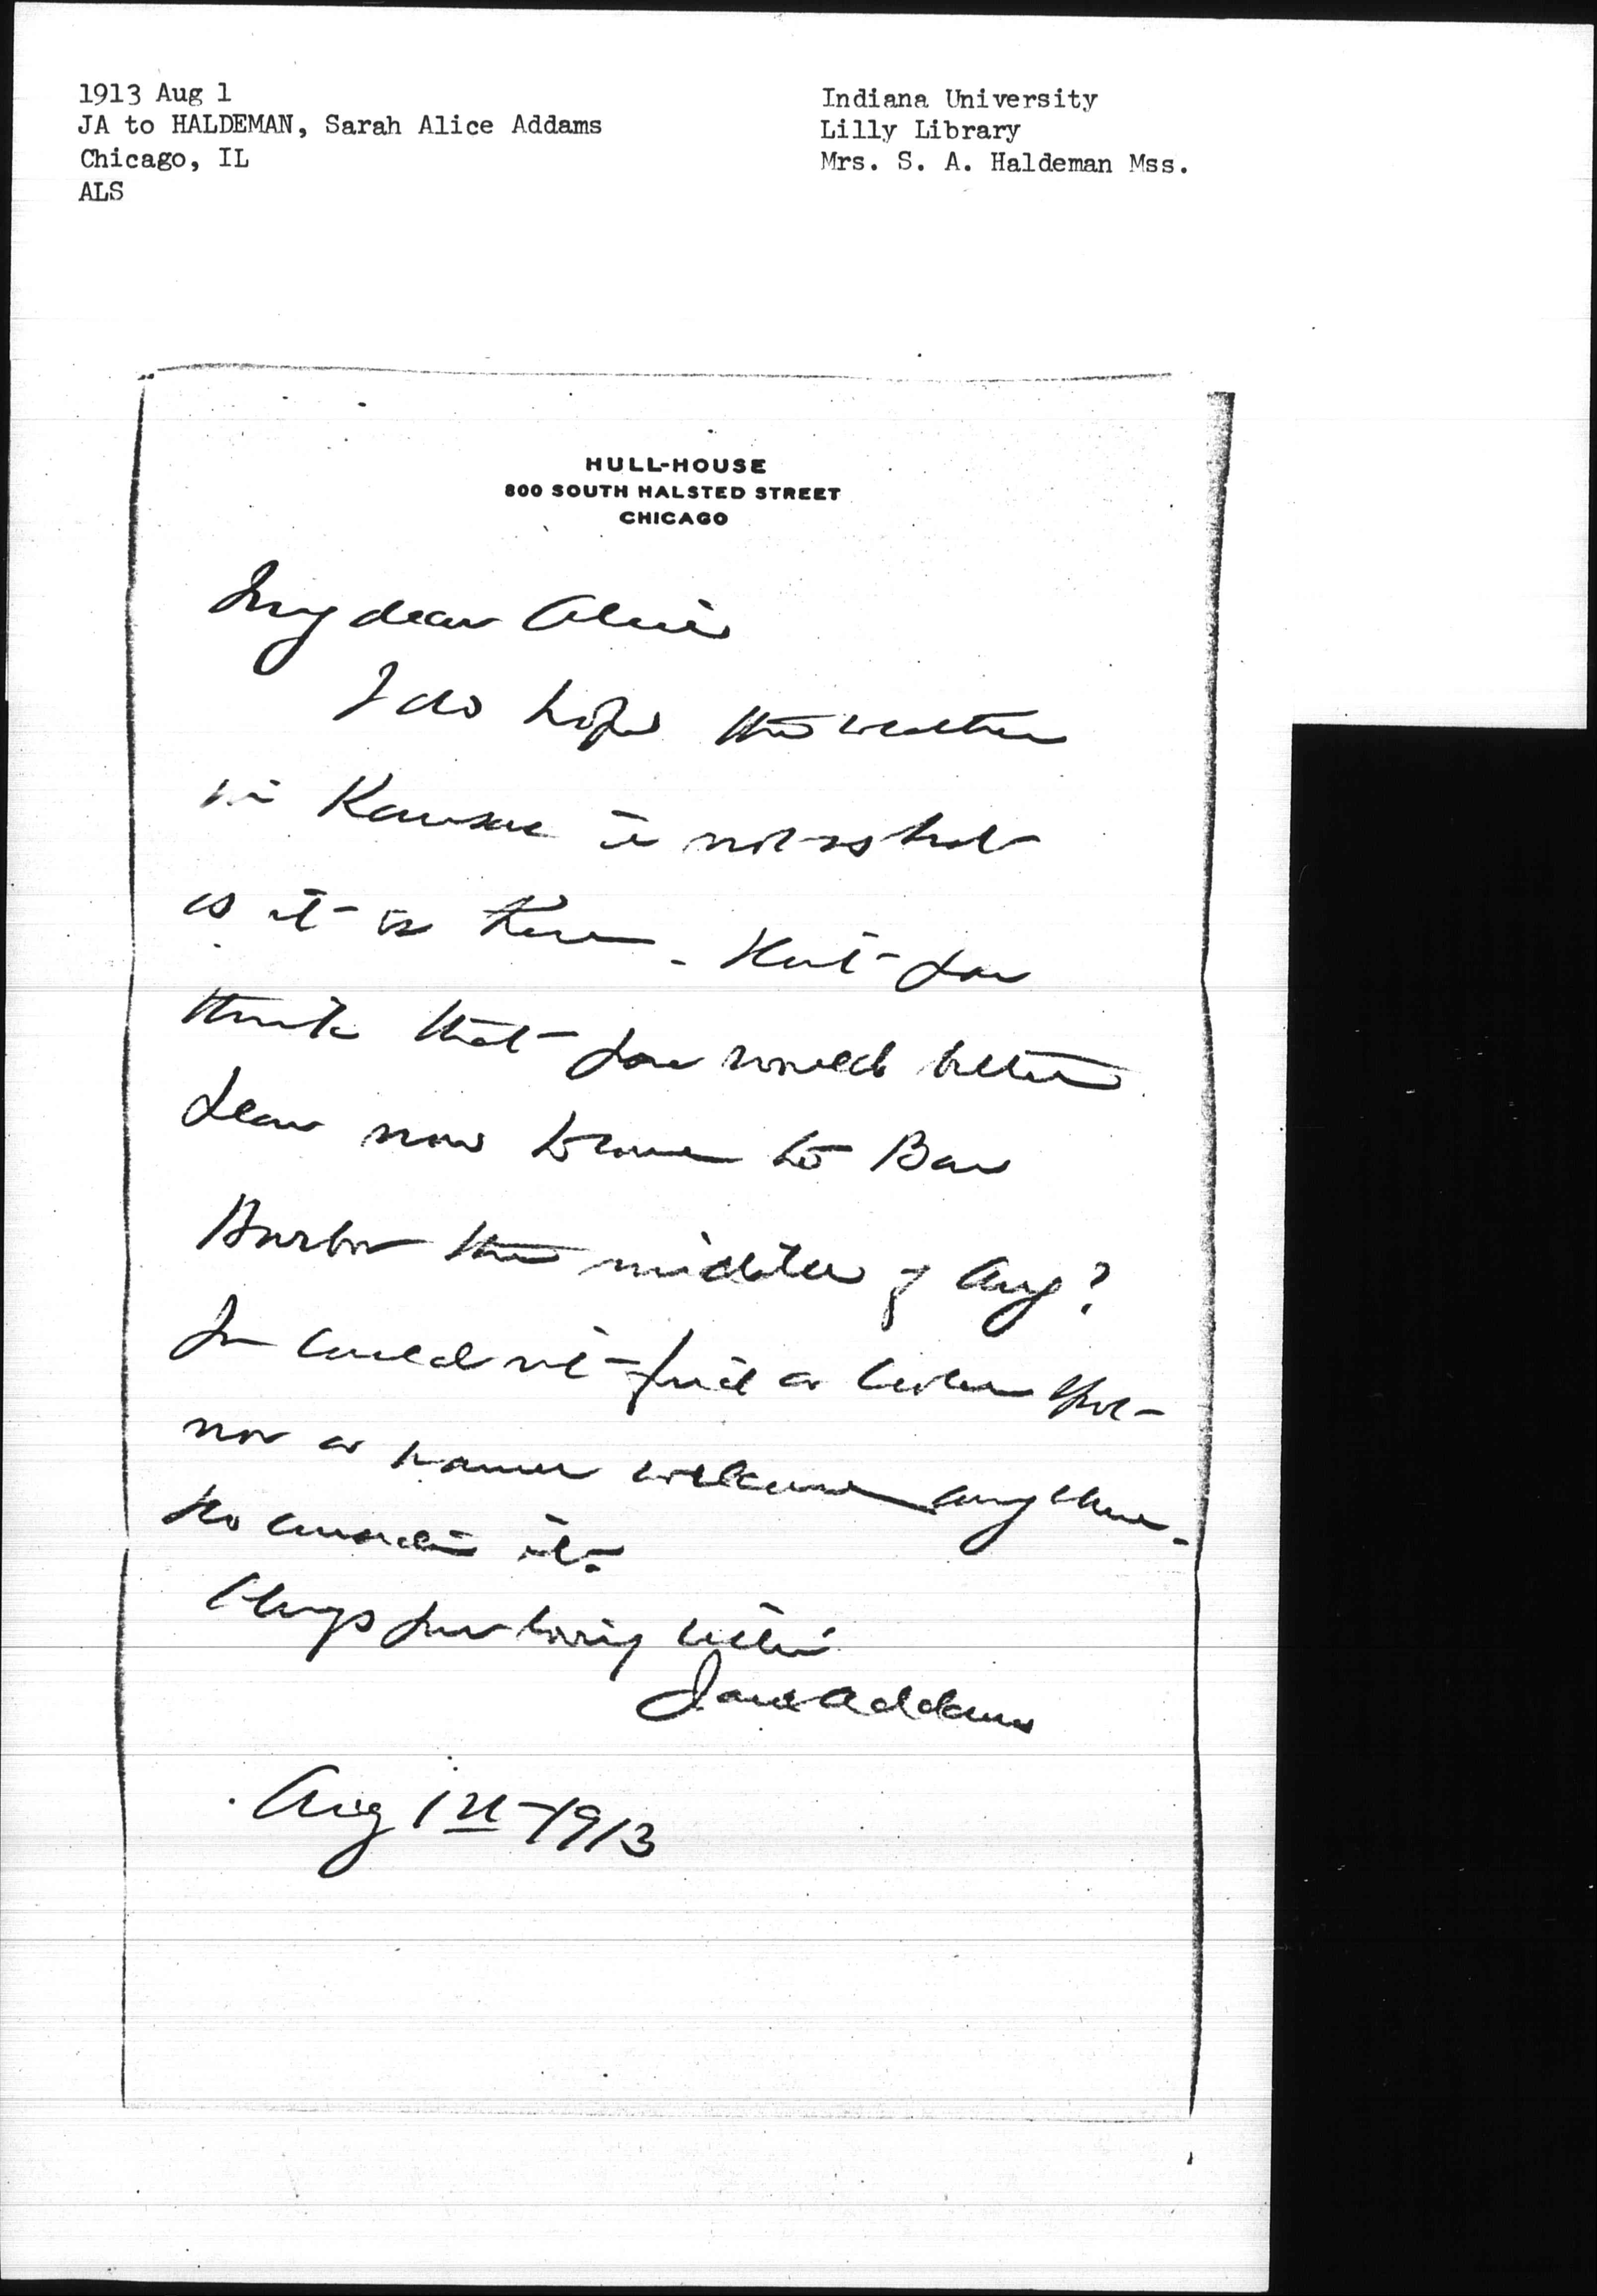 1913 Aug 1
JA to HALDEMAN, Sarah Alice Addams
Chicago, IL
ALS
Indiana University
Lilly Library
Mrs. S. A. Haldeman Mss.
HULL-HOUSE
800 SOUTH HALSTED STREET
CHICAGO
My dear Alice
I do hope the weather
in Kansas is not as hot
as it is here. Don't you
think that you would better
plan now to come to Bar
Harbor the middle of Aug?
You could not find a cooler spot
nor a warmer welcome anywhere.
Do consider it.
Always your loving sister
Jane Addams
Aug 1st 1913